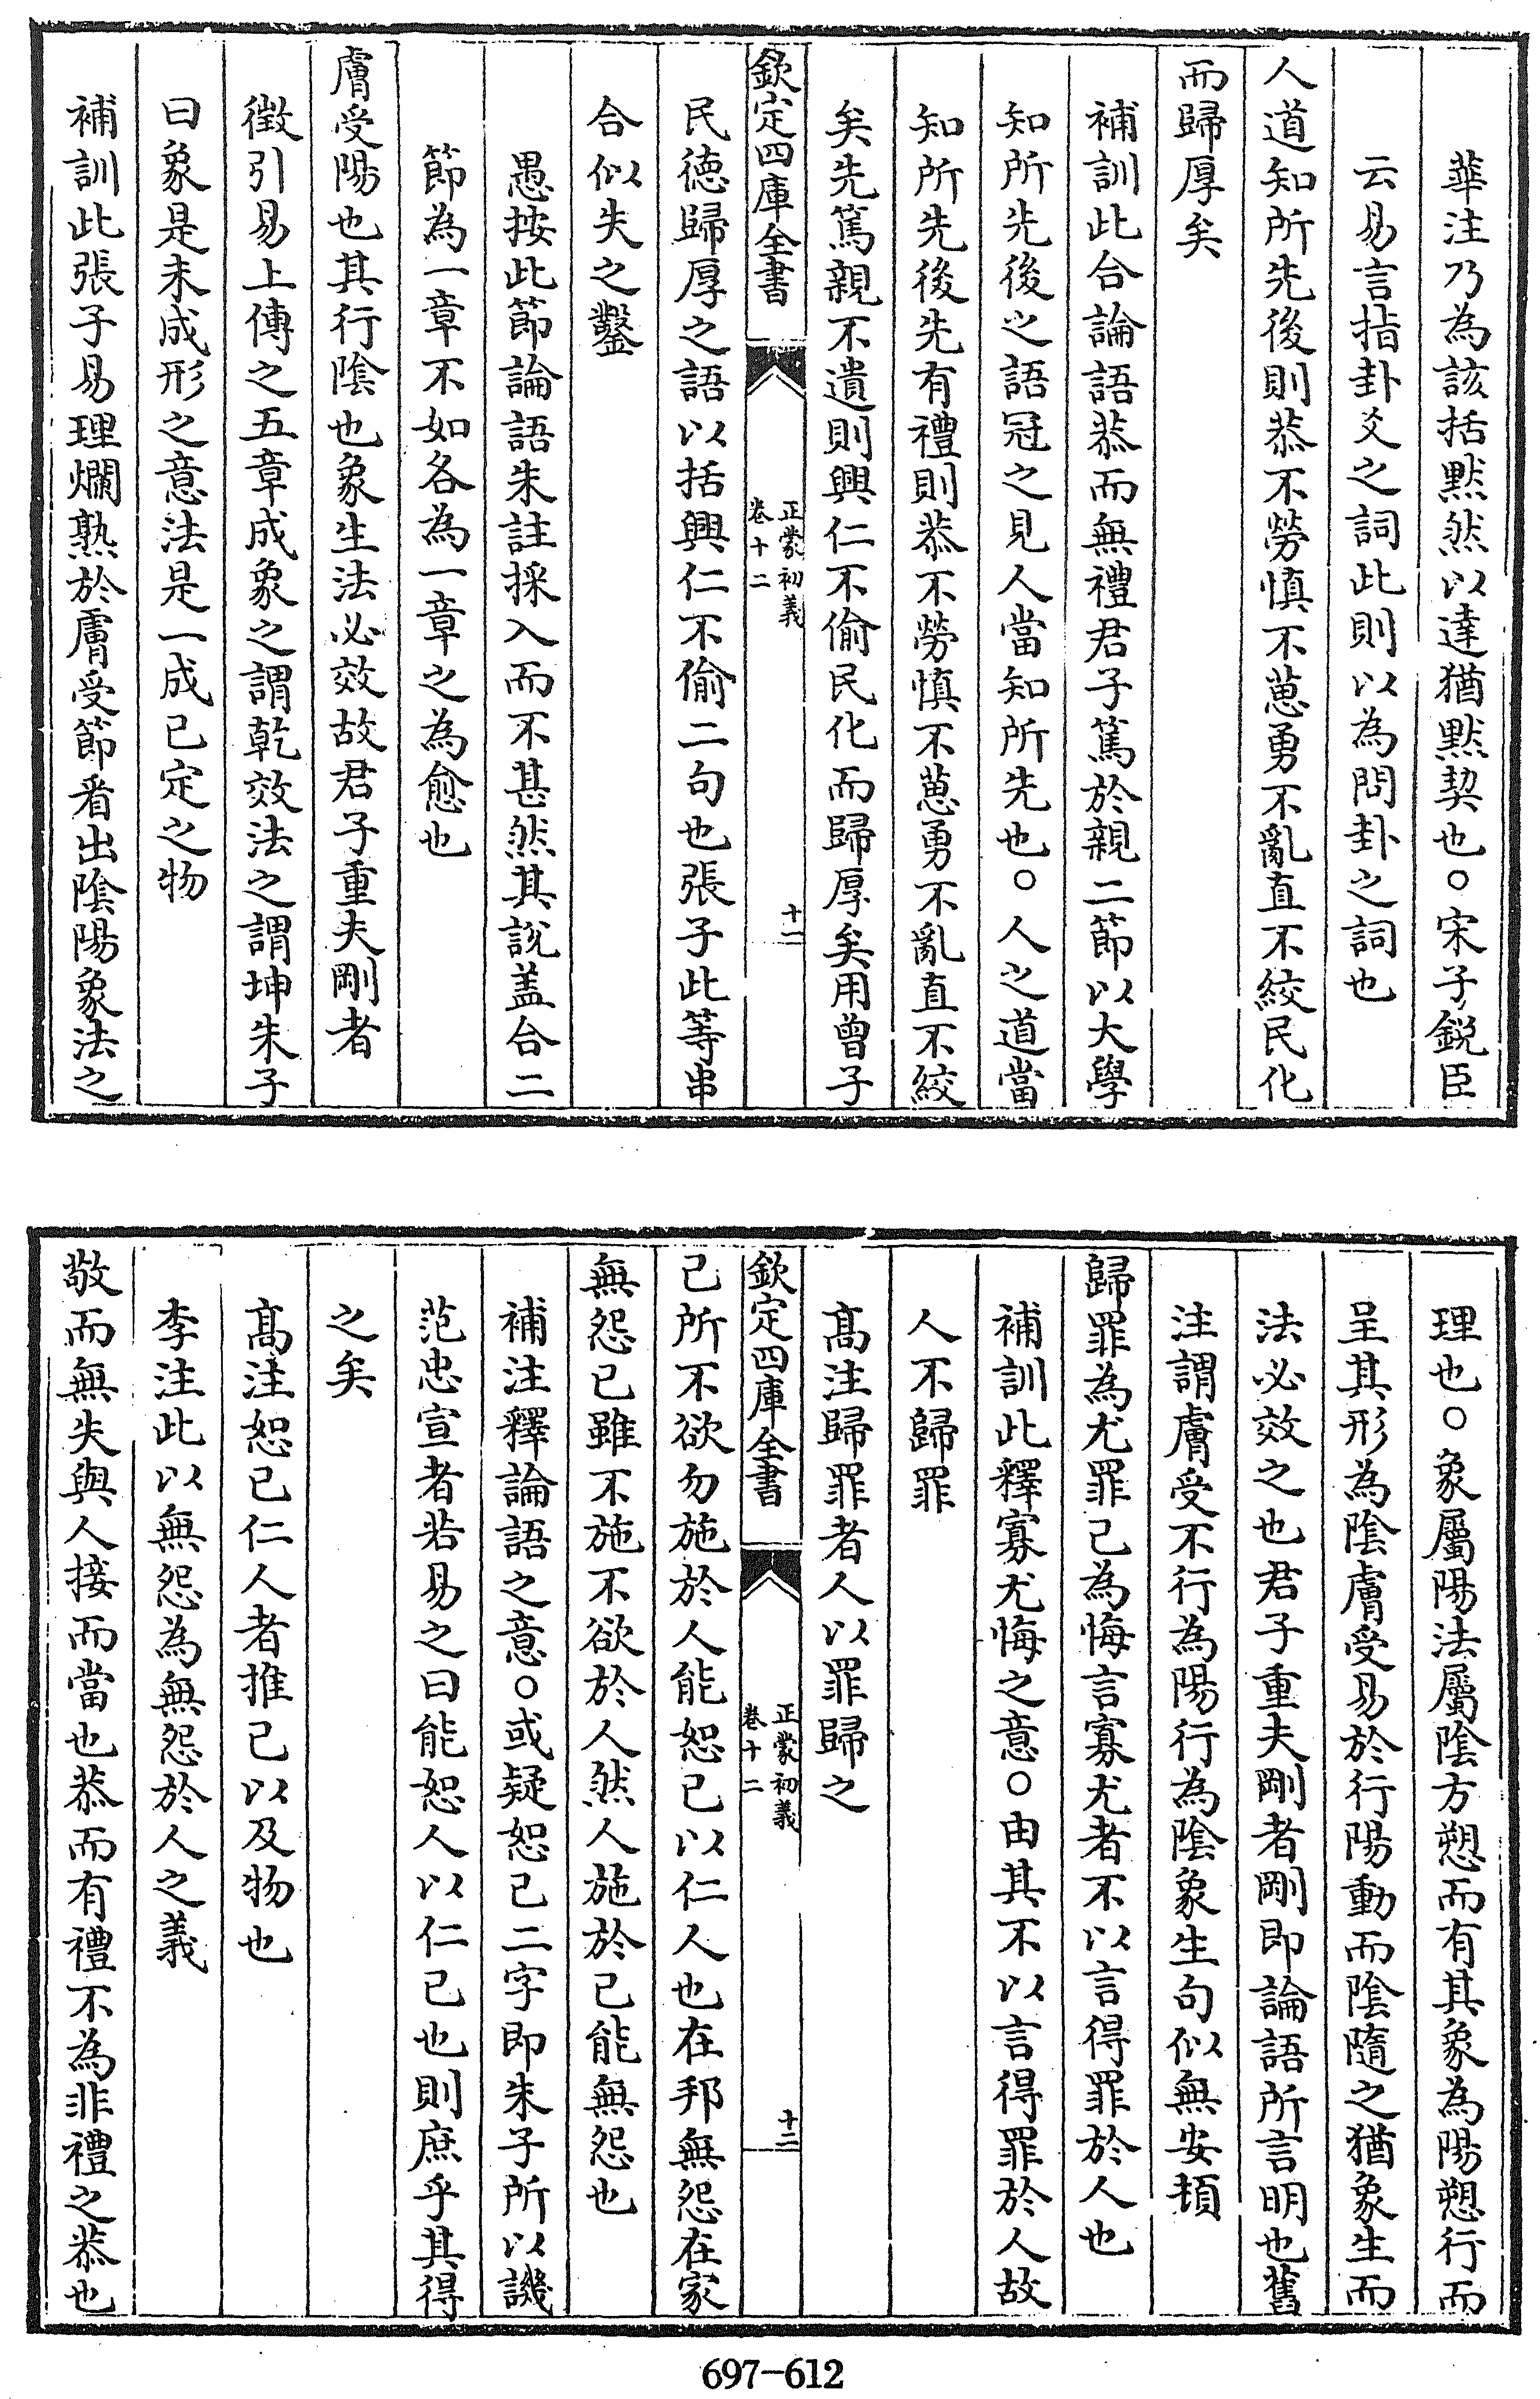 華注乃為該括黙然以達猶黙契也○宋子鋭臣
云易言指卦爻之詞此則以為問卦之詞也
人道知所先後則恭不勞慎不葸勇不亂直不絞民化
而歸厚矣
補訓此合論語恭而無禮君子篤於親二節以大學
知所先後之語冠之見人當知所先也○人之道當
知所先後先有禮則恭不勞慎不葸勇不亂直不絞
矣先篤親不遺則興仁不偷民化而歸厚矣用曾子
欽定四庫全書
正蒙初義
卷十二
十一
民德歸厚之語以括興仁不偷二句也張子此等串
合似失之鑿
愚按此節論語朱註採入而不甚然其說盖合二
節為一章不如各為一章之為愈也
膚受陽也其行陰也象生法必效故君子重夫剛者
徴引易上傳之五章成象之謂乾效法之謂坤朱子
曰象是未成形之意法是一成已定之物
補訓此張子易理爛熟於膚受節看出陰陽象法之
理也○象屬陽法屬陰方愬而有其象為陽愬行而
呈其形為陰膚受易於行陽動而陰隨之猶象生而
法必效之也君子重夫剛者剛即論語所言明也舊
注謂膚受不行為陽行為陰象生句似無安頓
歸罪為尤罪己為悔言寡尤者不以言得罪於人也
補訓此釋寡尤悔之意○由其不以言得罪於人故
人不歸罪
髙注歸罪者人以罪歸之
欽定四庫全書
正蒙初義
卷十二
十二
己所不欲勿施於人能恕己以仁人也在邦無怨在家
無怨己雖不施不欲於人然人施於己能無怨也
補注釋論語之意○或疑恕己二字即朱子所以譏
范忠宣者若易之曰能恕人以仁己也則庶乎其得
之矣
髙注恕己仁人者推己以及物也
李注此以無怨為無怨於人之義
敬而無失與人接而當也恭而有禮不為非禮之恭也
697-612